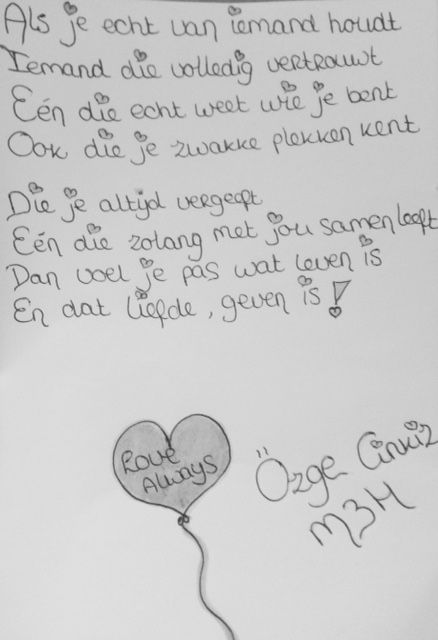 Als je echt van iemand houdt
Iemand die volledig vertrouwt
Eén die echt weet wie je bent
Ook die je zwakke plekken kent
Die je altijd vergeeft
Eén die zolang met jou samenleeft
Dan voel je pas wat leven is
En dat liefde, geven is!
Love
Always
Özge
M3H